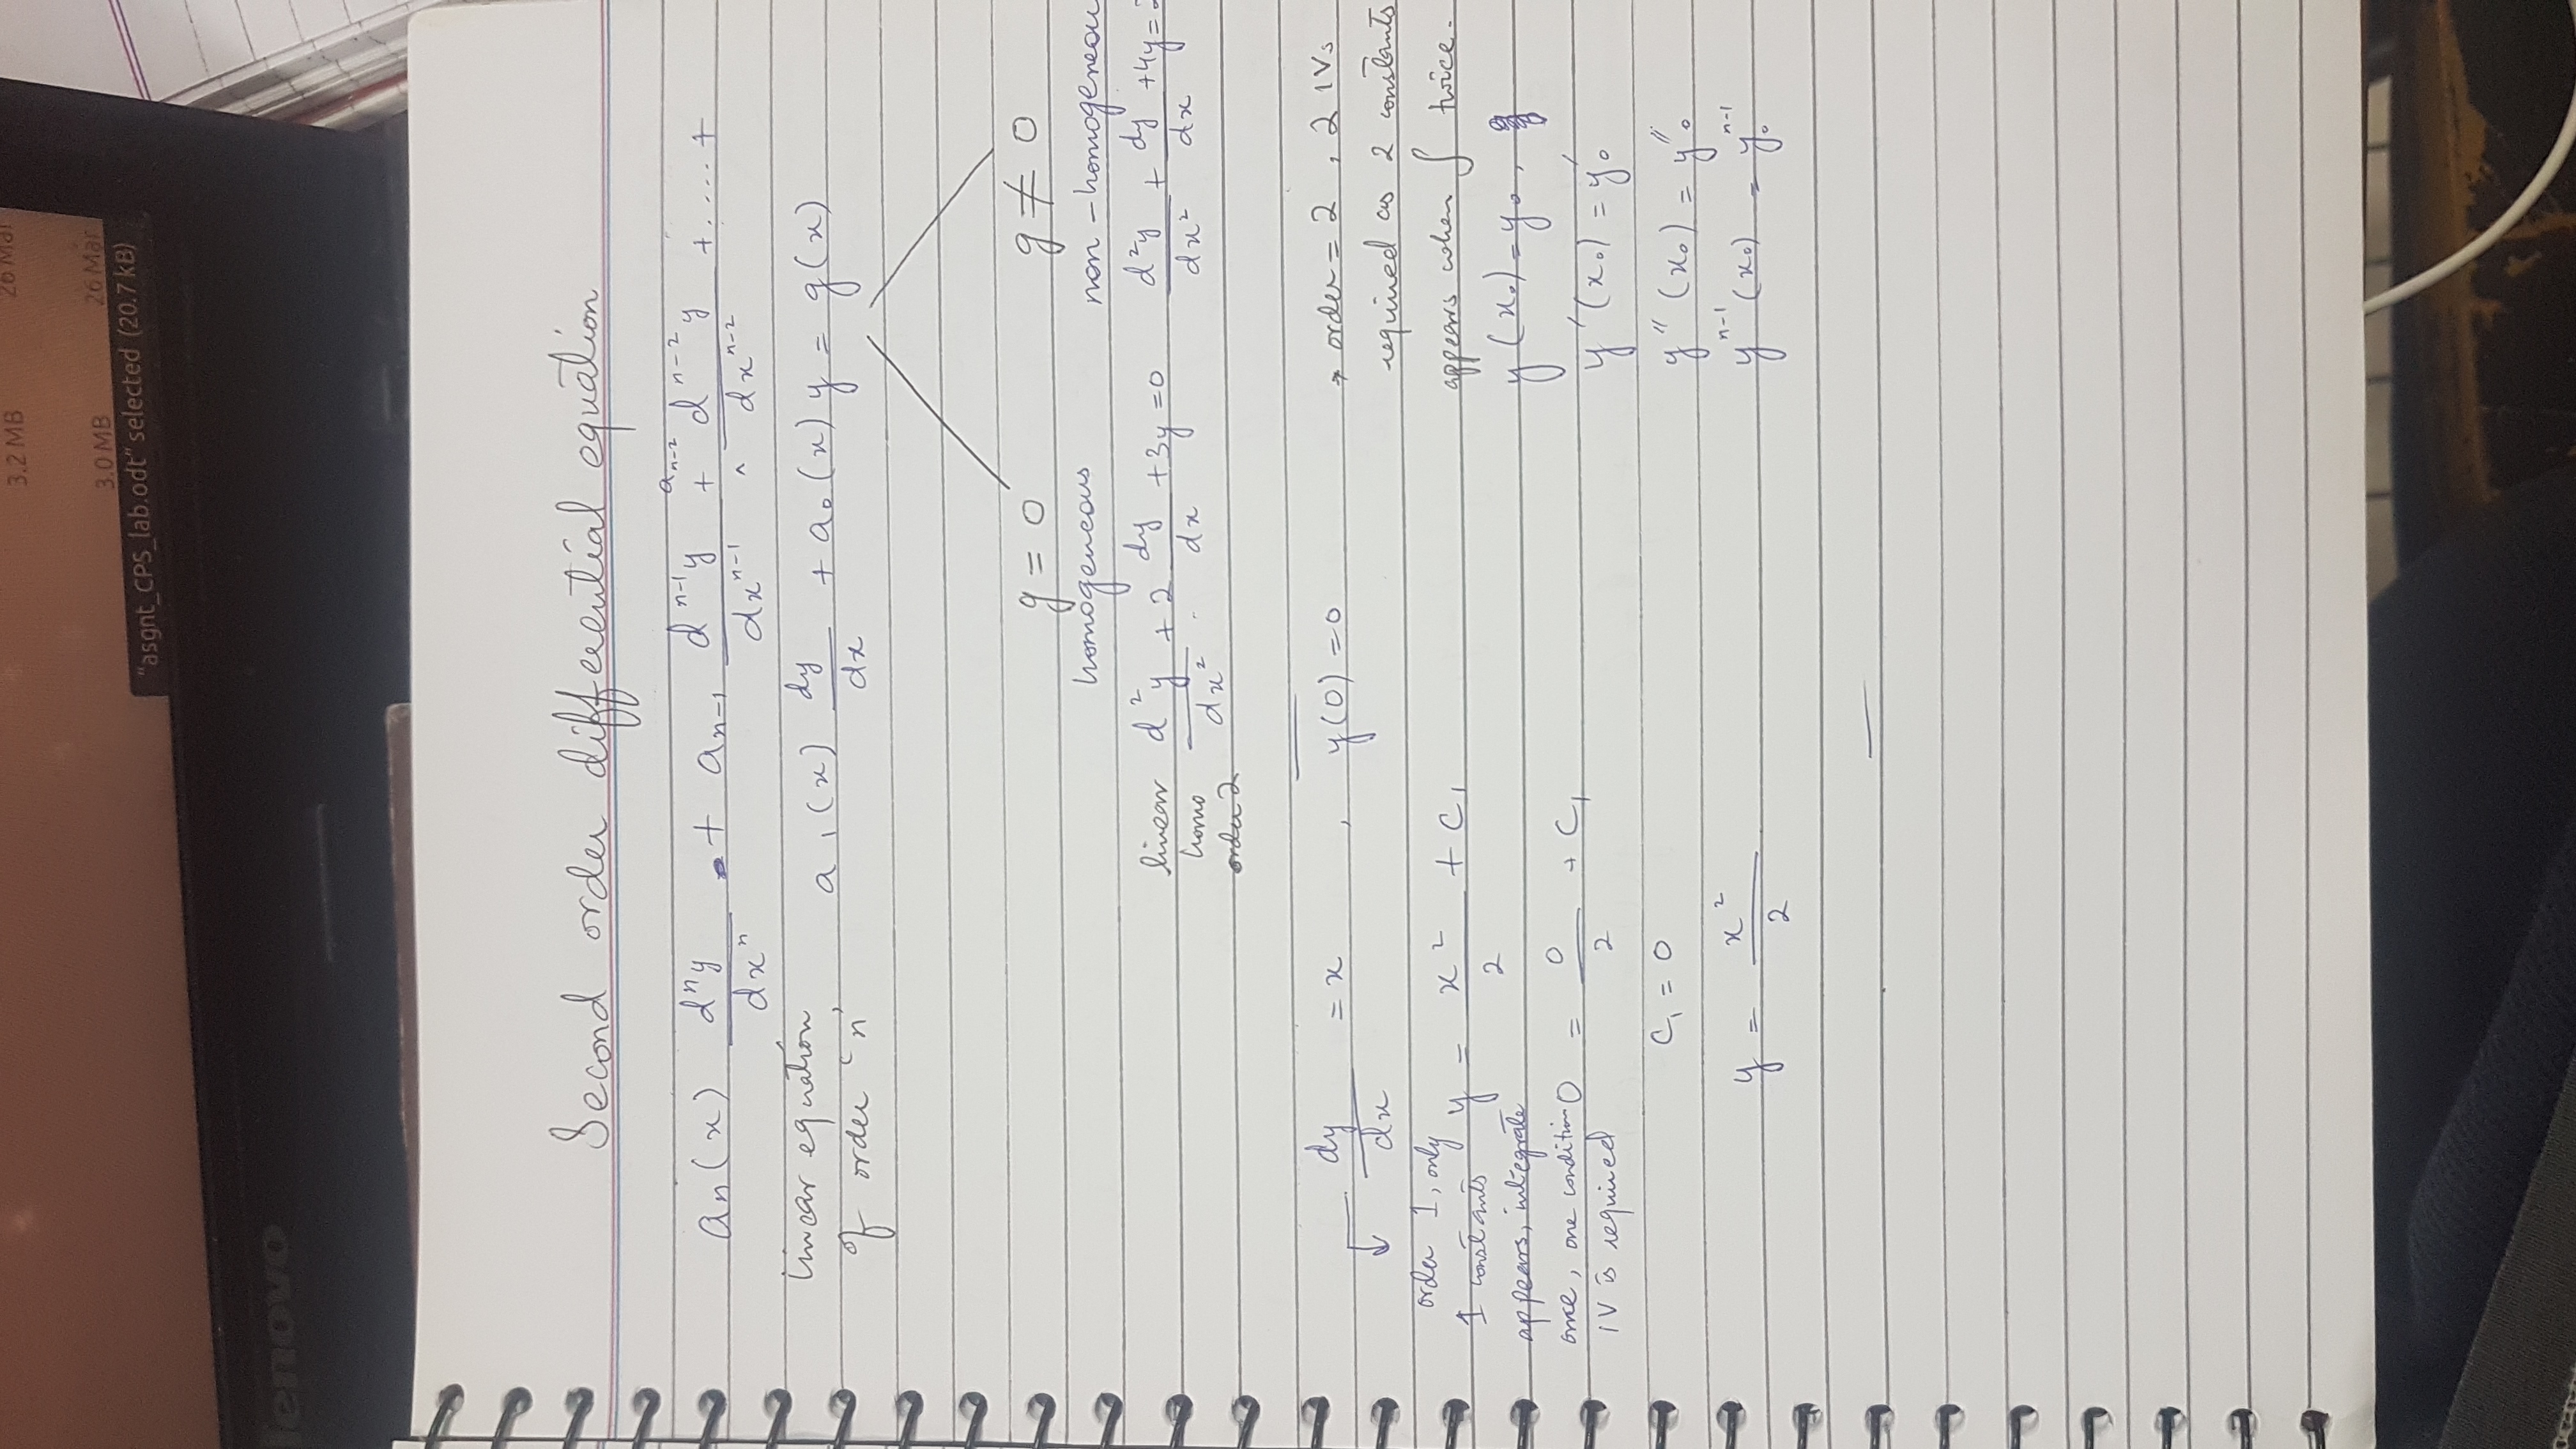 3.2 MB 26 Mar
3.0 MB 26 Mar
"asgnt_CPS_lab.odt" selected (20.7 kB)
lenovo
Second order differential equation
aₙ(x) dⁿy/dxⁿ + aₙ₋₁ dⁿ⁻¹y/dxⁿ⁻¹ + aₙ₋₂ dⁿ⁻²y/dxⁿ⁻² + .... +
linear equation
of order 'n'
a₁(x) dy/dx + a₀(x) y = g(x)
g = 0 g ≠ 0
homogeneous non - homogeneou
linear
homo
order 2
d²y/dx² + 2 dy/dx + 3y = 0
d²y/dx² + dy/dx + 4y =
dy/dx = x , y(0) = 0
order 1, only
1 constants
appears, integrate
once, one condition
IV is required
y = x²/2 + C₁
0 = 0/2 + C₁
C₁ = 0
y = x²/2
→ order = 2 , 2 IVs
required as 2 constants
appears when ∫ twice.
y(x₀) = y₀,
y'(x₀) = y'₀
y''(x₀) = y''₀
yⁿ⁻¹(x₀) = y₀ⁿ⁻¹